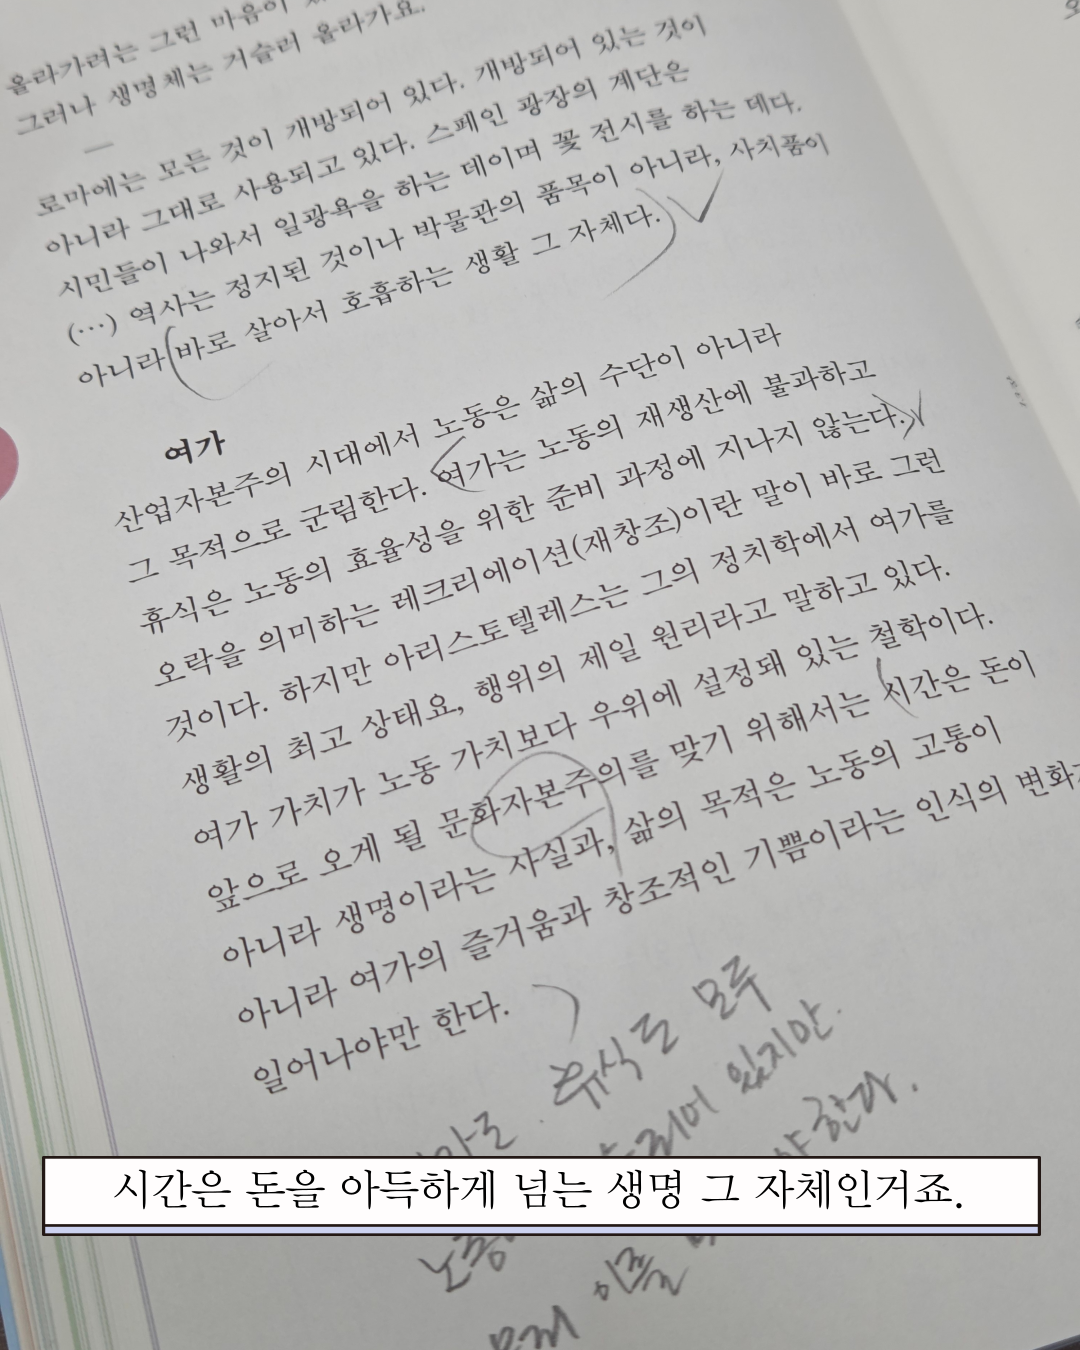 올라가려는 그런 마음이
그러나 생명체는 거슬러 올라가요.
로마에는 모든 것이 개방되어 있다. 개방되어 있는 것이
아니라 그대로 사용되고 있다. 스페인 광장의 계단은
시민들이 나와서 일광욕을 하는 데이며 꽃 전시를 하는 데다.
(…) 역사는 정지된 것이나 박물관의 품목이 아니라, 사치품이
아니라 바로 살아서 호흡하는 생활 그 자체다.
여가
산업자본주의 시대에서 노동은 삶의 수단이 아니라
그 목적으로 군림한다. 여가는 노동의 재생산에 불과하고
휴식은 노동의 효율성을 위한 준비 과정에 지나지 않는다.
오락을 의미하는 레크리에이션(재창조)이란 말이 바로 그런
것이다. 하지만 아리스토텔레스는 그의 정치학에서 여가를
생활의 최고 상태요, 행위의 제일 원리라고 말하고 있다.
여가 가치가 노동 가치보다 우위에 설정돼 있는 철학이다.
앞으로 오게 될 문화자본주의를 맞기 위해서는 시간은 돈이
아니라 생명이라는 사실과, 삶의 목적은 노동의 고통이
아니라 여가의 즐거움과 창조적인 기쁨이라는 인식의 변화가
일어나야만 한다.
휴식도 모두
되어 있지만.
야 한다.
시간은 돈을 아득하게 넘는 생명 그 자체인거죠.
이를